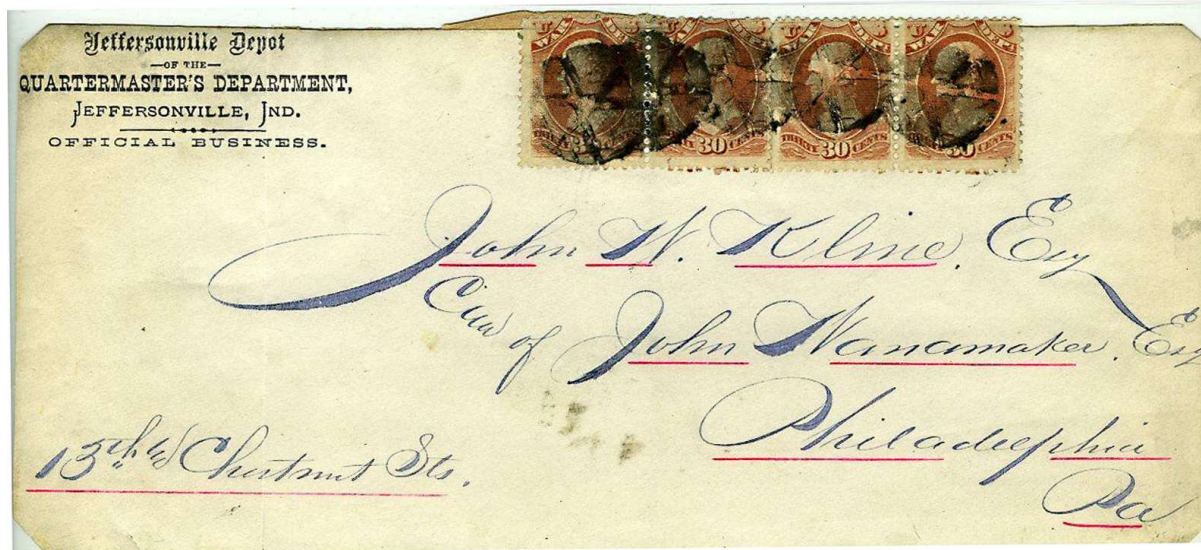 Jeffersonville Depot
—OF THE—
QUARTERMASTER'S DEPARTMENT,
JEFFERSONVILLE, IND.
OFFICIAL BUSINESS.
U S WAR DEPT. THIRTY CENTS
U S WAR DEPT. THIRTY 30 CENTS
U S WAR DEPT. THIRTY 30 CENTS
U S WAR DEPT. 30 CENTS
John W. Kline, Esq
Care of John Wanamaker, Esq
Philadelphia
Pa
13th & Chestnut Sts.